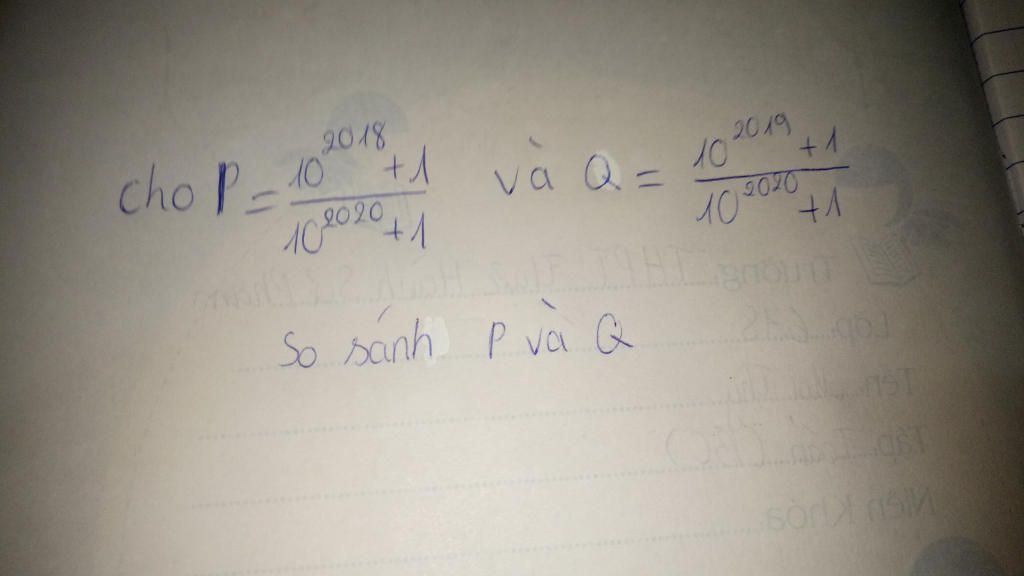 Cho P = \frac{10^{2018}+1}{10^{2020}+1} và Q = \frac{10^{2019}+1}{10^{2020}+1}
So sánh P và Q